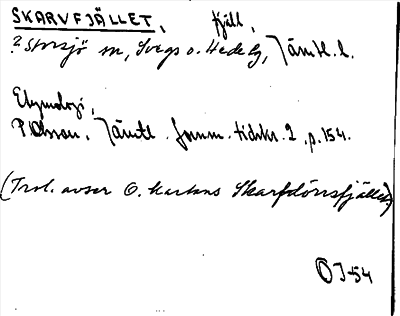 SKARVFJÄLLET, fjäll,
? Storsjö sn, Svegs o. Hede tg, Jämtl. l.
Etymologi,
P. Olsson, Jämtl. fornm. tidskr. 2, p. 154.
(Trol. avser G. kartans Skarfdörrsfjället)
OJ-54